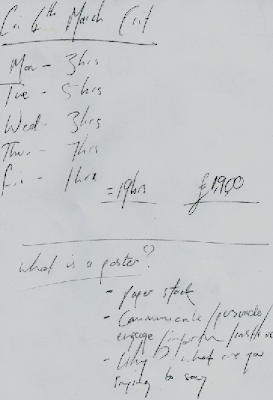 Fri 6th March Crit
Mon - 3hrs
Tue - 5hrs
Wed - 3hrs
Thu. - 7hrs
Fri - 1hrs
= 19hrs £1,900
What is a poster?
- Paper stock
- Communicate / persuade /
engage / inform /
- Why? - what are you
trying to say